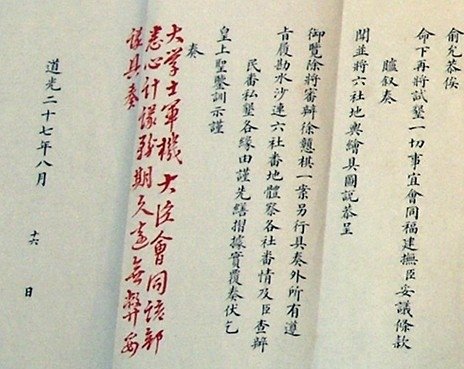 俞允恭俟
命下再將試墾一切事宜會同福建撫臣妥議條款
臚叙奏
聞並將六社地輿繪具圖説恭呈
御覽除將審辦徐戇棋一案另行具奏外所有遵
旨履勘水沙連六社番地體察各社番情及臣查辦
民番私墾各緣由謹先繕摺據實覆奏伏乞
皇上聖鑒訓示謹
奏
大学士軍機大臣會同該部
悉心計議務期久遠無弊妥
議具奏
道光二十七年八月
十六
日